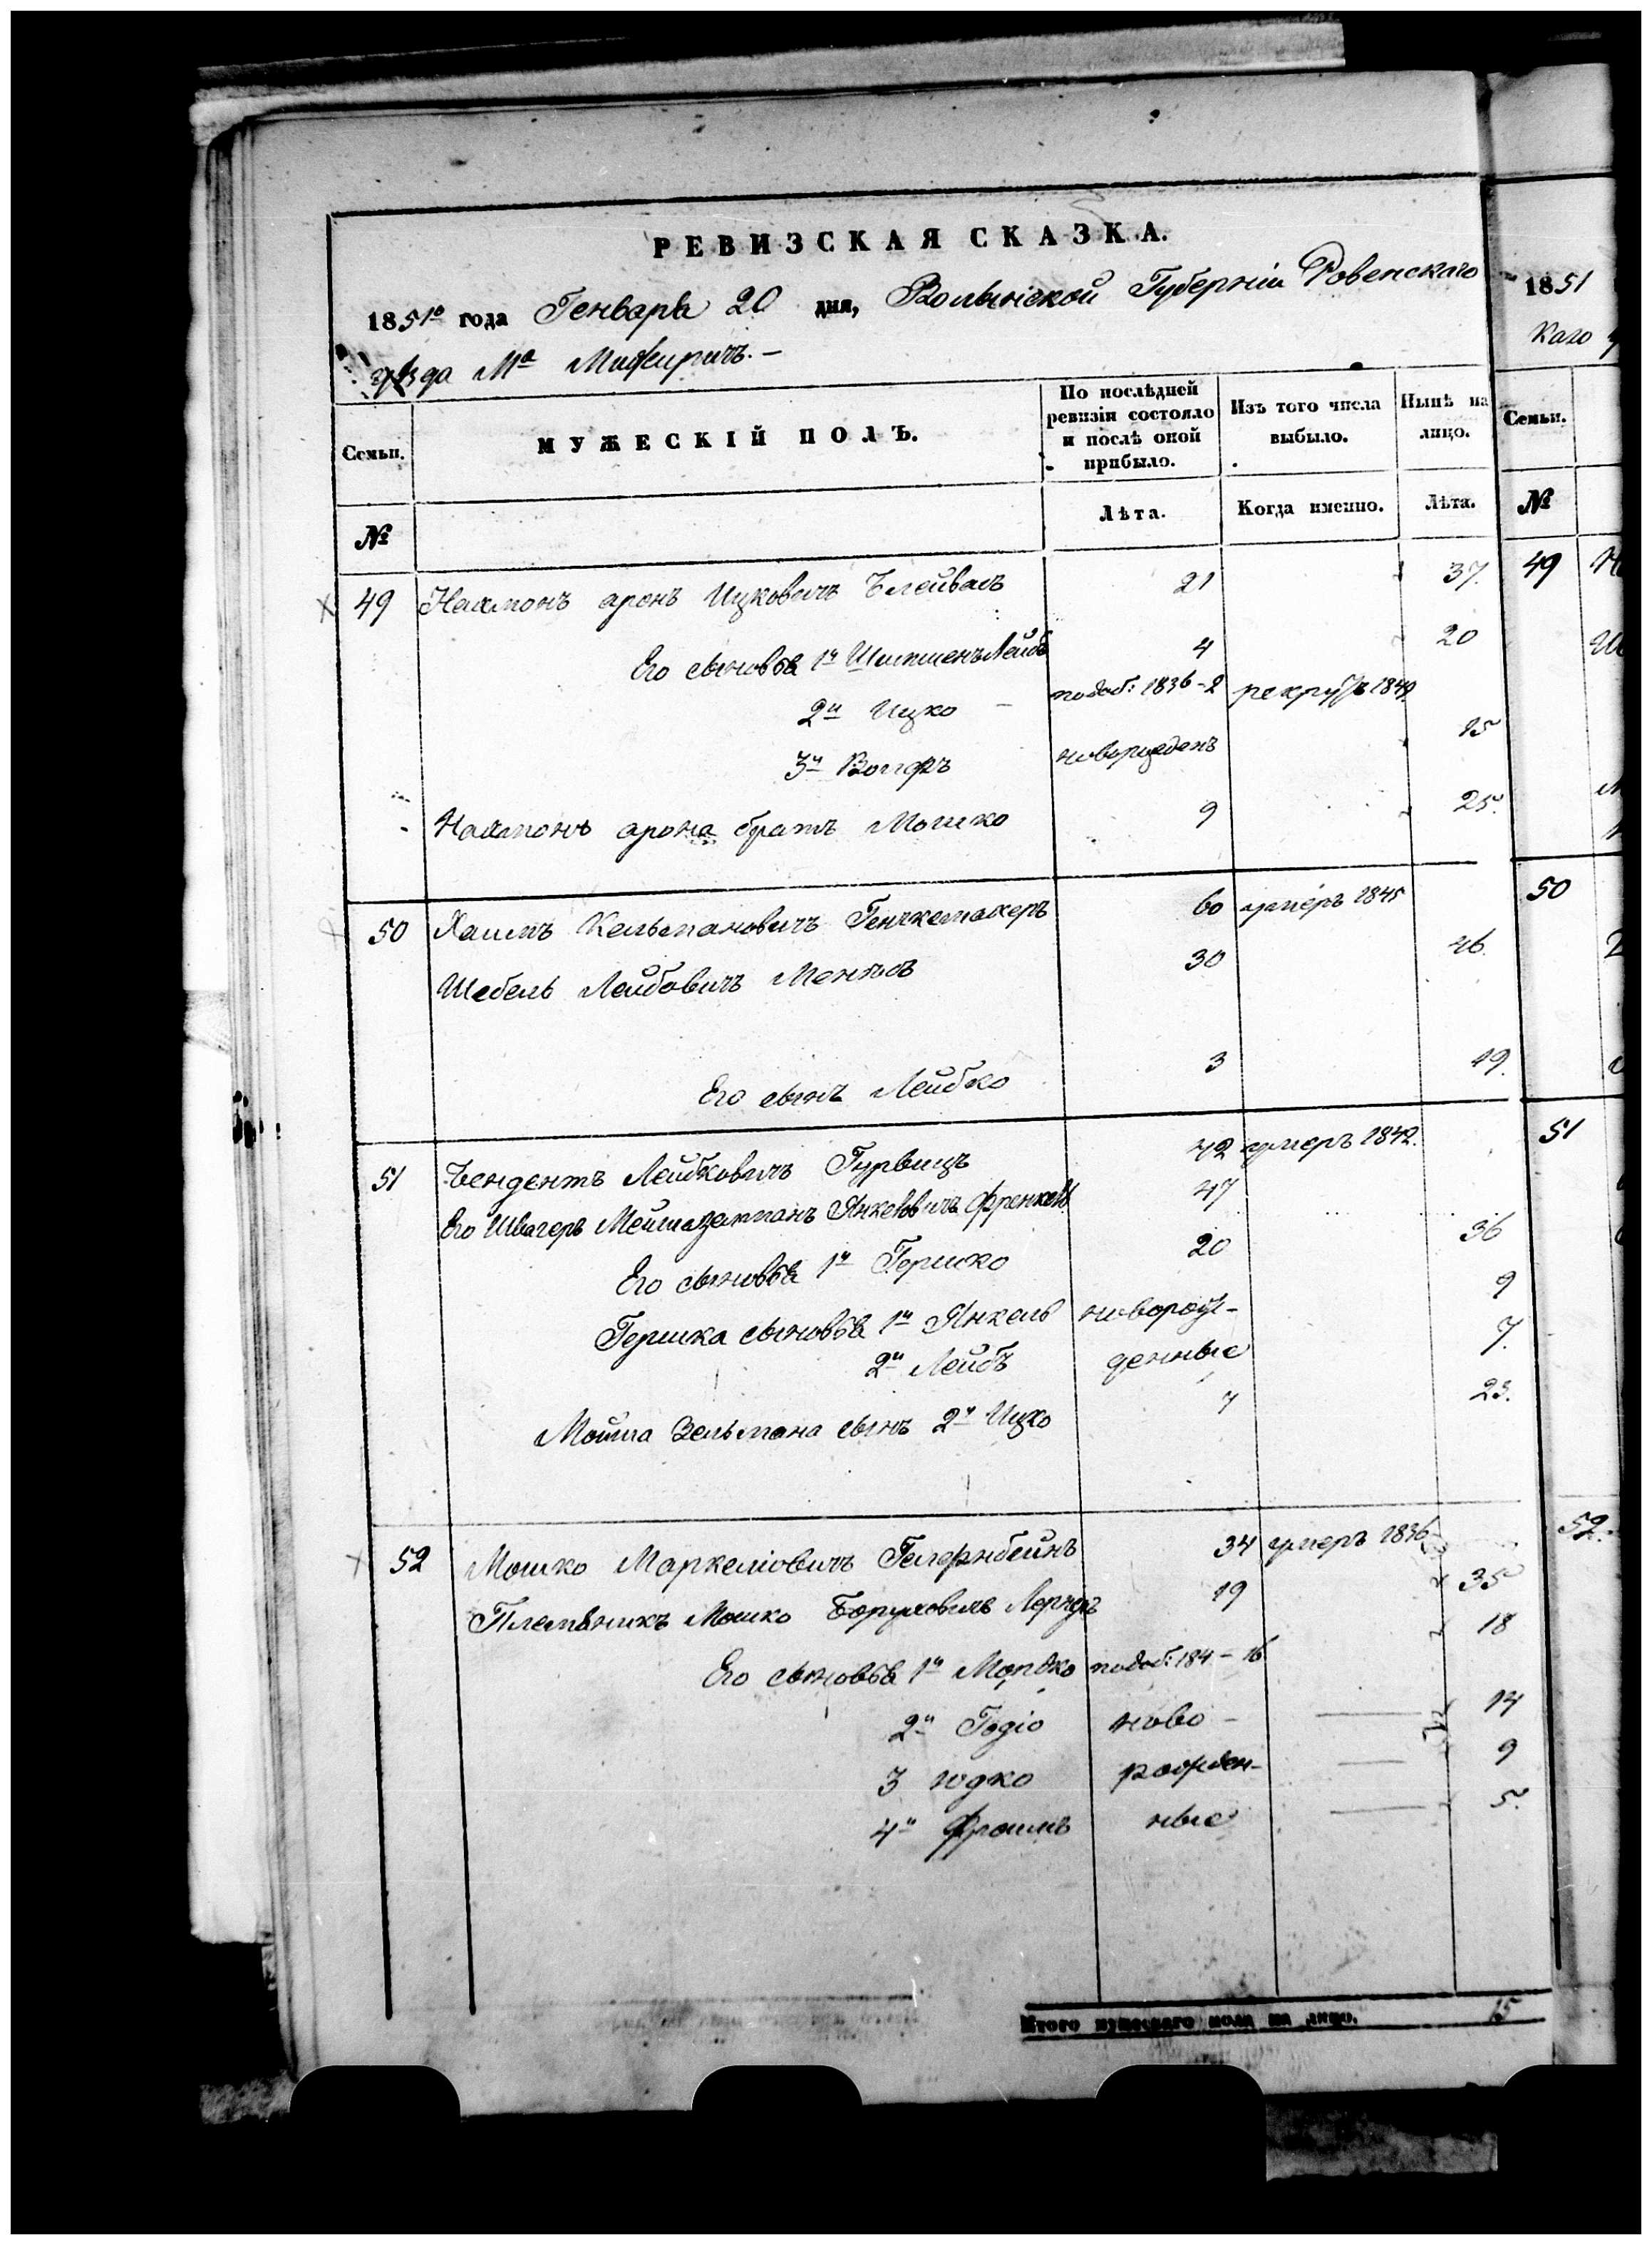 РЕВИЗСКАЯ СКАЗКА.
1851го года Генваря 20 дня, Волынской Губерніи Ровенскаго
уѣзда Ма Межиричъ. –
Семьи.
МУЖЕСКІЙ ПОЛЪ.
По послѣдней ревизіи состояло и послѣ оной прибыло.
Изъ того числа выбыло.
Нынѣ на лицо.
№
Лѣта.
Когда именно.
Лѣта.
49 Нахмонъ аронъ Ицковичъ 21 37.
Его сыновья 1й Лейбъ 4 20
2й Ицко – 1836 - 2 рекрутъ 1849
3й Волфъ новорожденъ 15
Нахмонъ арона братъ Мошко 9 25.
50 Хаимъ Кельмановичъ 60 умеръ 1845
Шебель Лейбовичъ 30 46.
Его сынъ Лейбко 3 19.
51 Лейбковичъ Гурвицъ 42 умеръ 1842.
Его Швагеръ Янкелевичъ Френкель 47
Его сыновья 1й Гершко 20 36
Гершка сыновья 1й Янкель новорож- 9
2й Лейбъ денные 7.
Мойша Зельмана сынъ 2й Ицко 7 23.
52 Мошко Маркелiовичъ Гелфнбейнъ 34 умеръ 1836
Племяникъ Мошко Боруховичъ Лернеръ 19 35
Его сыновья 1й Мордко 184 - 16 18
2й ново - 14
3 юдко рожден- 9
4й Фроимъ ные 5.
Итого мужескаго пола на лицо. 15
1851
каго
Семьи.
№
49
50
51
52.